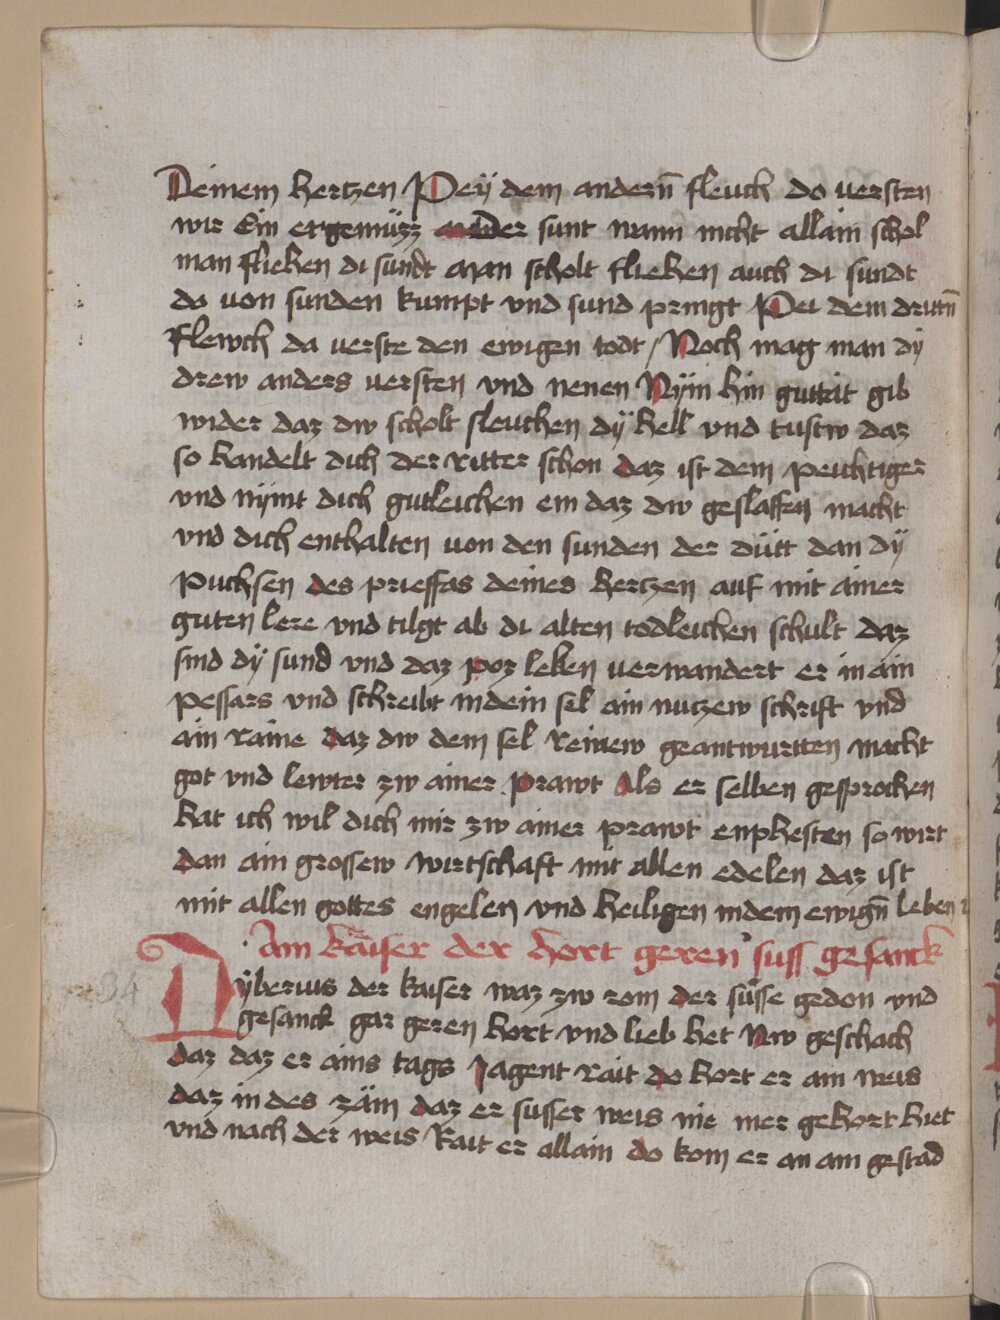 Deinem hertzen Pey dem andern̄ fleuch do versten
wir Ein ergemüzz der sunt wann nicht allain schol
man fliehen di sundt man scholt fliehen auch di sundt
da von sunden kumpt vnd sund pringt Pei dem dritn̄
flewch da verste den ewigen todt / Noch mag man dy
drew anders versten vnd nenen Nÿm hin guttat gib
wider daz dw scholt fleuchen dÿ hell vnd tustw daz
so handelt dich der ritter schon daz ist dem peichtiger
vnd nÿmt dich gutleichen ein daz dw geslaffen macht
vnd dich enthalten von den sunden der dütt dan dÿ
puchsen des prieffas deines hertzen auf mit ainer
guten lere vnd tilgt ab di alten todleichen schult daz
sind dÿ sund vnd daz poz leben verwandert er in ain
pessars vnd schreibt in dein sel ain nutzew schrift vnd
ain raine daz dw dein sel reinew geantwurtten macht
got vnd lewter zw ainer prawt Als er selben gesprochen
hat ich wil dich mir zw ainer prawt enphesten so wirt
dan ain grossew wirtschaft mit allen edelen daz ist
mit allen gottes engelen vnd heiligen in dem ewign̄ leben
Ain kaiser der hort geren suss gesanck
34
Dyberius der kaiser waz zw rom der süsse gedon vnd
gesanck gar geren hort vnd lieb het Nw geschach
daz daz er ains tags Jagent rait do hort er ain weis
daz in des zäm daz er susser weis nie mer gehort hiet
vnd nach der weis Rait er allain do kom er an ain gestad